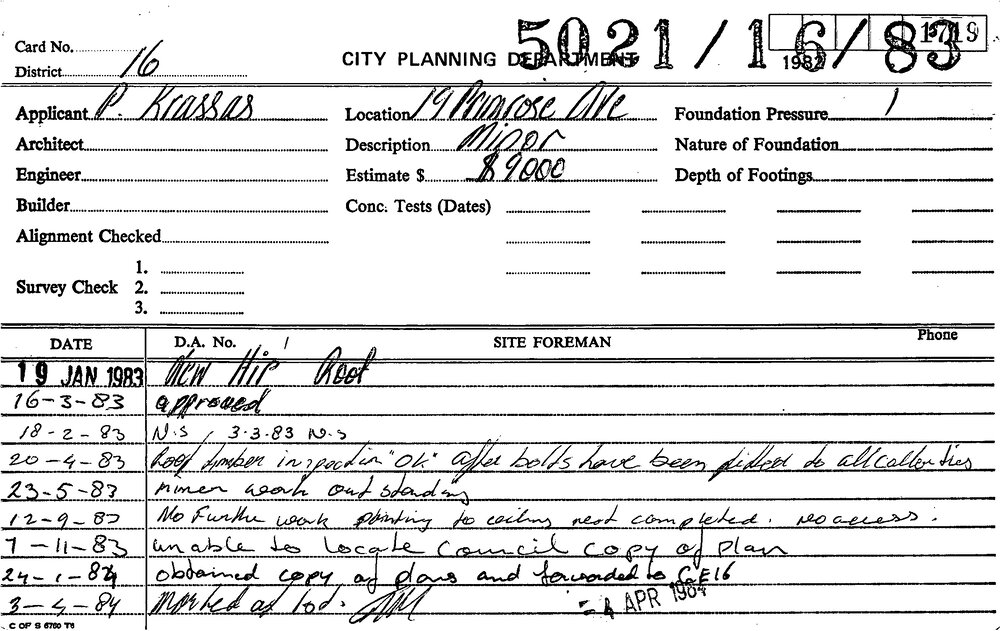 5021/16/83
1719
Card No.
1982
District 16
CITY PLANNING DEPARTMENT
Applicant P. Krassas Location 19 Primrose Ave Foundation Pressure
Architect Description Minor Nature of Foundation
Engineer Estimate $ $9000 Depth of Footings
Builder Conc. Tests (Dates)
Alignment Checked
1.
Survey Check 2.
3.
DATE D.A. No. SITE FOREMAN Phone
19 JAN 1983 New Hip Roof
16-3-83 approved
18-2-83 N.S, 3.3.83 N.S
20-4-83 Roof timber inspection "OK" after bolts have been fitted to all collar ties
23-5-83 minor work outstanding
12-9-83 No Further work painting to ceiling not completed. no access.
7-11-83 unable to locate Council copy of plan
24-1-84 obtained copy of plans and forwarded to C.E16
3-4-84 Marked as
-4 APR 1984
C OF S 6760 T6